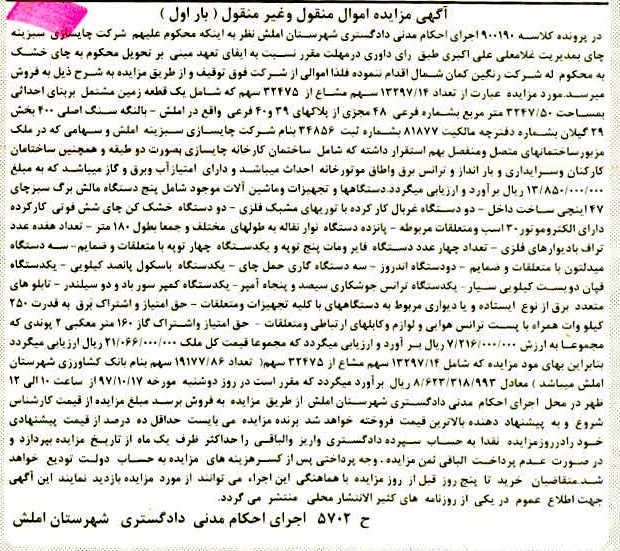 آگهی مزایده اموال منقول وغیر منقول ( بار اول )
در پرونده کلاسه ۹۰۰۱۹۰ اجرای احکام مدنی دادگستری شهرستان املش نظر به اینکه محکوم علیهم شرکت چایسازی سبزینه
چای بمدیریت غلامعلی علی اکبری طبق رای داوری درمهلت مقرر نسبت به ایفای تعهد مبنی بر تحویل محکوم به چای خشک
به محکوم له شرکت رنگین کمان شمال اقدام ننموده فلذا اموالی از شرکت فوق توقیف و از طریق مزایده به شرح ذیل به فروش
میرسد.مورد مزایده عبارت از تعداد ۱۳۲۹۷/۱۴ سهم مشاع از ۳۲۴۷۵ سهم که شامل یک قطعه زمین مشتمل بربنای احداثی
بمساحت ۳۲۴۷/۵۰ متر مربع بشماره فرعی ۴۸ مجزی از پلاکهای ۳۹ و۴۰ فرعی واقع در املش - بالنگه سنگ اصلی ۴۰۰ بخش
۲۹ گیلان بشماره دفترچه مالکیت ۸۱۸۷۷ بشماره ثبت ۳۴۸۵۶ بنام شرکت چایسازی سبزینه املش و سهامی که در ملک
مزبورساختمانهای متصل ومنفصل بهم استقرار داشته که شامل ساختمان کارخانه چایسازی بصورت دو طبقه و همچنین ساختامان
کارکنان وسرایداری و بار انداز و ترانس برق واطاق موتورخانه احداث میباشد و دارای امتیازآب وبرق و گاز میباشد که به مبلغ
۱۳/۸۵۰/۰۰۰/۰۰۰ ریال برآورد و ارزیابی میگردد.دستگاهها و تجهیزات وماشین آلات موجود شامل پنج دستگاه مالش برگ سبزچای
۴۷ اینچی ساخت داخل - دو دستگاه غربال کار کرده با توریهای مشبک فلزی - دو دستگاه خشک کن چای شش فوتی کارکرده
دارای الکتروموتور ۳۰ اسب ومتعلقات مربوطه - پانزده دستگاه نوار نقاله به طولهای مختلف و جمعا بطول ۱۸۰ متر - تعداد هفده عدد
تراف بادیوارهای فلزی - تعداد چهار عدد دستگاه فایر ومات پنج توپه و یکدستگاه چهار توپه با متعلقات و ضمایم- سه دستگاه
میدلتون با متعلقات و ضمایم - دودستگاه اندروز - سه دستگاه گاری حمل چای - یکدستگاه باسکول پانصد کیلویی - یکدستگاه
قپان دویست کیلویی سیار - یکدستگاه ترانس جوشکاری سیصد و پنجاه آمپر - یکدستگاه کمپر سور باد و دو سیلندر - تابلو های
متعدد برق از نوع ایستاده و یا دیواری مربوط به دستگاههای با کلیه تجهیزات ومتعلقات - حق امتیاز و اشتراک برق به قدرت ۲۵۰
کیلو وات همراه با پست ترانس هوایی و لوازم وکابلهای ارتباطی ومتعلقات - حق امتیاز واشتراک گاز ۱۶۰ متر معکبی ۲ پوندی که
مجموعا به ارزش ۷/۲۱۶/۰۰۰/۰۰۰ ریال بر آورد و ارزیابی میگردد که مجموعا قیمت کل ملک ۲۱/۰۶۶/۰۰۰/۰۰۰ ریال ارزیابی میگردد
بنابراین بهای مود مزایده که شامل ۱۳۲۹۷/۱۴ سهم مشاع از ۳۲۴۷۵ سهم( تعداد ۱۹۱۷۷/۸۶ سهم بنام بانک کشاورزی شهرستان
املش میباشد ) معادل ۸/۶۲۳/۳۱۸/۹۹۳ ریال برآورد میگردد که مقرر است در روز دوشنبه مورخه ۹۷/۱۰/۱۷ از ساعت ۱۰ الی ۱۲
ظهر در محل اجرای احکام مدنی دادگستری شهرستان املش از طریق مزایده به فروش برسد مبلغ مزایده از قیمت کارشناس
شروع و به پیشنهاد دهنده بالاترین قیمت فروخته خواهد شد برنده مزایده می بایست حداقل ده درصد از قیمت پیشنهادی
خود رادرروزمزایده نقدا به حساب سپرده دادگستری واریز والباقی را حداکثر ظرف یک ماه از تاریخ مزایده بپردازد و
در صورت عدم پرداخت الباقی ثمن مزایده ، وجه پرداختی پس از کسرهزینه های مزایده به حساب دولت تودیع خواهد
شد.متقاضیان خرید تا پنج روز قبل از روز مزایده با هماهنگی این اجراء می توانند از مورد مزایده بازدید نمایند این آگهی
جهت اطلاع عموم در یکی از روزنامه های کثیر الانتشار محلی منتشر می گردد.
ح ۵۷۰۲ اجرای احکام مدنی دادگستری شهرستان املش